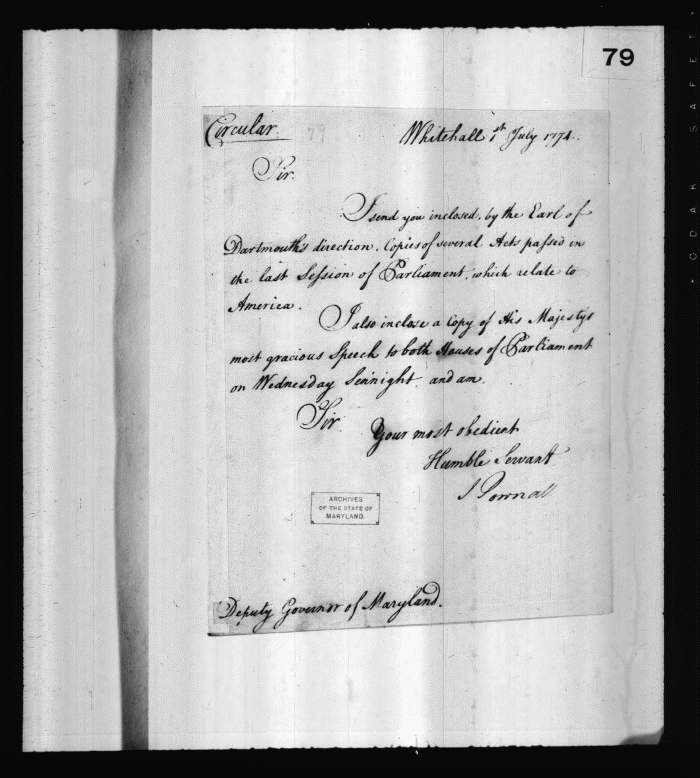 79
Circular. Whitehall 1st July 1774.
Sir.
I send you inclosed, by the Earl of
Dartmouth's direction, Copies of several Acts passed in
the last Session of Parliament, which relate to
America.
I also inclose a Copy of His Majesty's
most gracious Speech to both Houses of Parliament
on Wednesday Sen'night and am,
Sir.
Your most obedient
Humble Servant
J Pownall
ARCHIVES
OF THE STATE OF
MARYLAND.
Deputy Governor of Maryland.